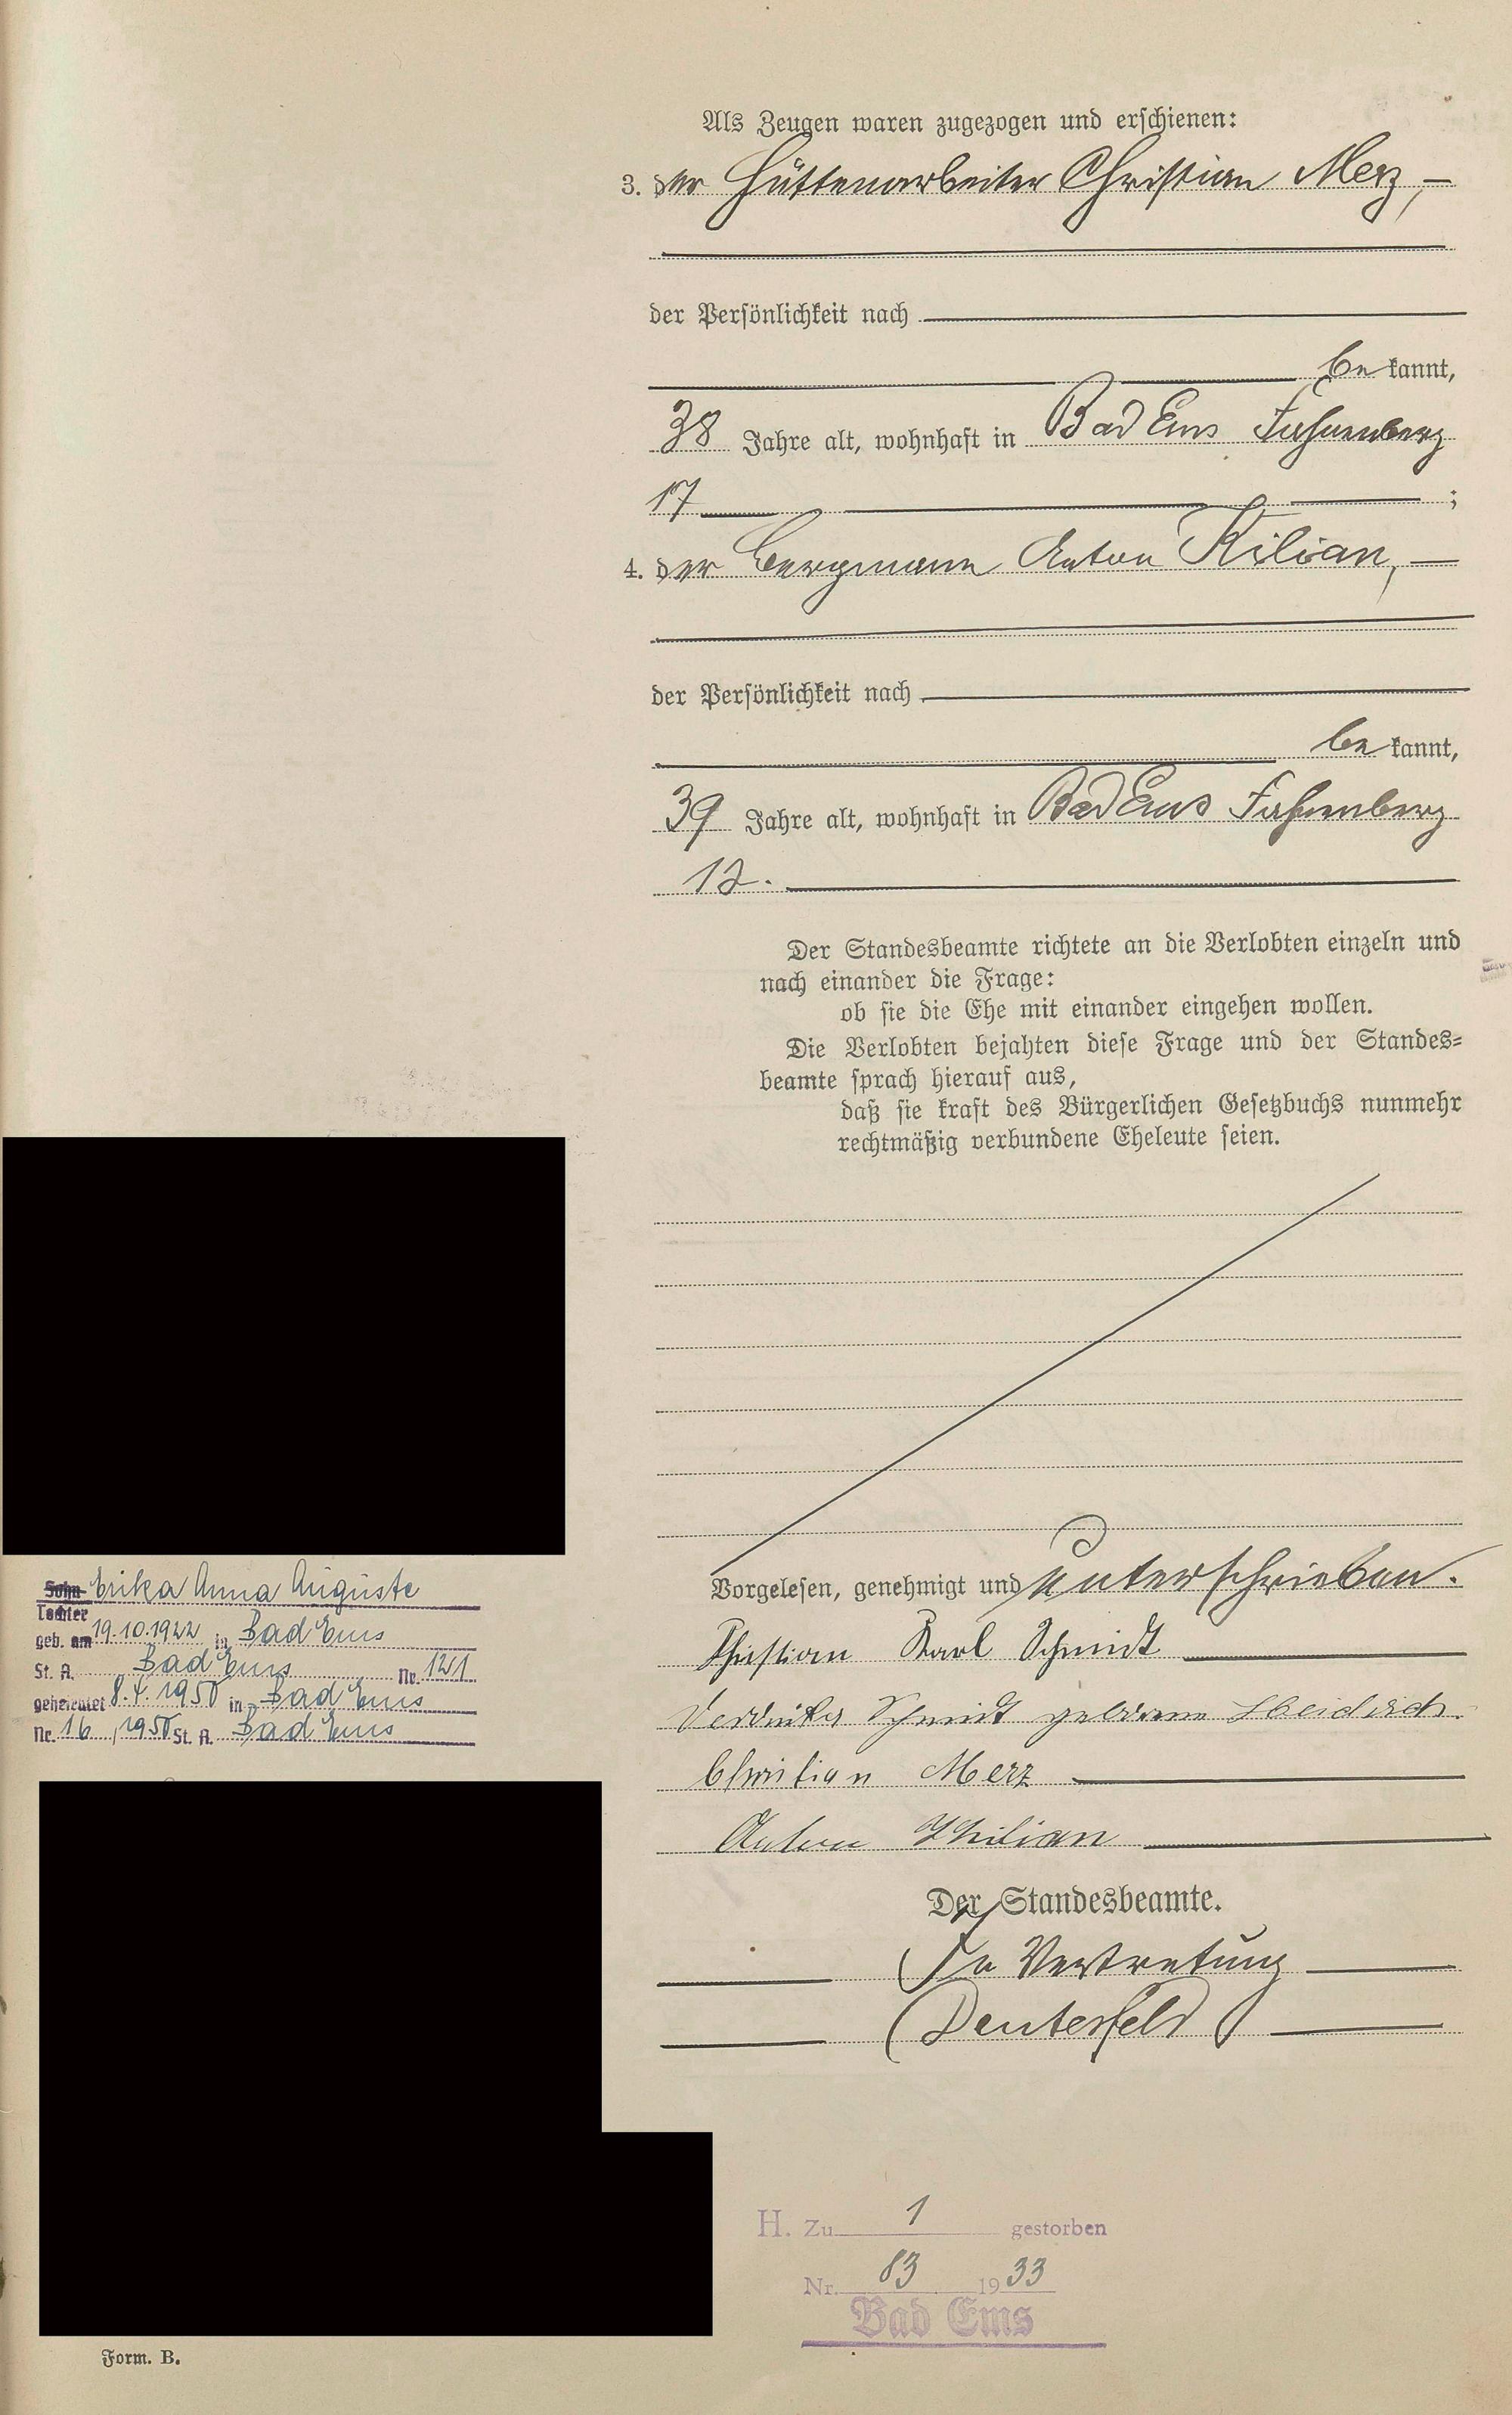 Als Zeugen waren zugezogen und erschienen:
3. der Hüttenarbeiter Christian Merz,
der Persönlichkeit nach
be kannt,
38 Jahre alt, wohnhaft in Bad Ems Fahnenberg
17 ;
4. der Bergmann Anton Kilian,
der Persönlichkeit nach
be kannt,
39 Jahre alt, wohnhaft in Bad Ems Fahnenberg
12.
Der Standesbeamte richtete an die Verlobten einzeln und
nach einander die Frage:
ob sie die Ehe mit einander eingehen wollen.
Die Verlobten bejahten diese Frage und der Standes=
beamte sprach hierauf aus,
daß sie kraft des Bürgerlichen Gesetzbuchs nunmehr
rechtmäßig verbundene Eheleute seien.
Vorgelesen, genehmigt und unterschrieben.
Christian Karl Schmidt
Schmidt geborene
Christian Merz
Anton Khilian
Der Standesbeamte.
In Vertretung
Deutesfeld
Sohn Erika Anna Auguste
Tochter
geb. am 19.10.1922 in Bad Ems
St. A. Bad Ems Nr. 121
geheiratet 8.4.1950 in Bad Ems
Nr. 16, 1950 St. A. Bad Ems
H. Zu 1 gestorben
Nr. 83 1933
Bad Ems
Form. B.